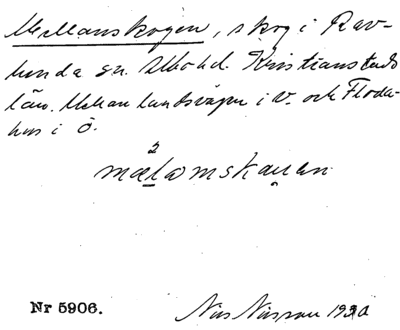 Mellanskogen, skog i Rav-
lunda sn. Albo hd. Kristianstads
län. Mellan landsvägen i V. och Floda-
hus i Ö.
Nr 5906. Nils Nilsson 1930